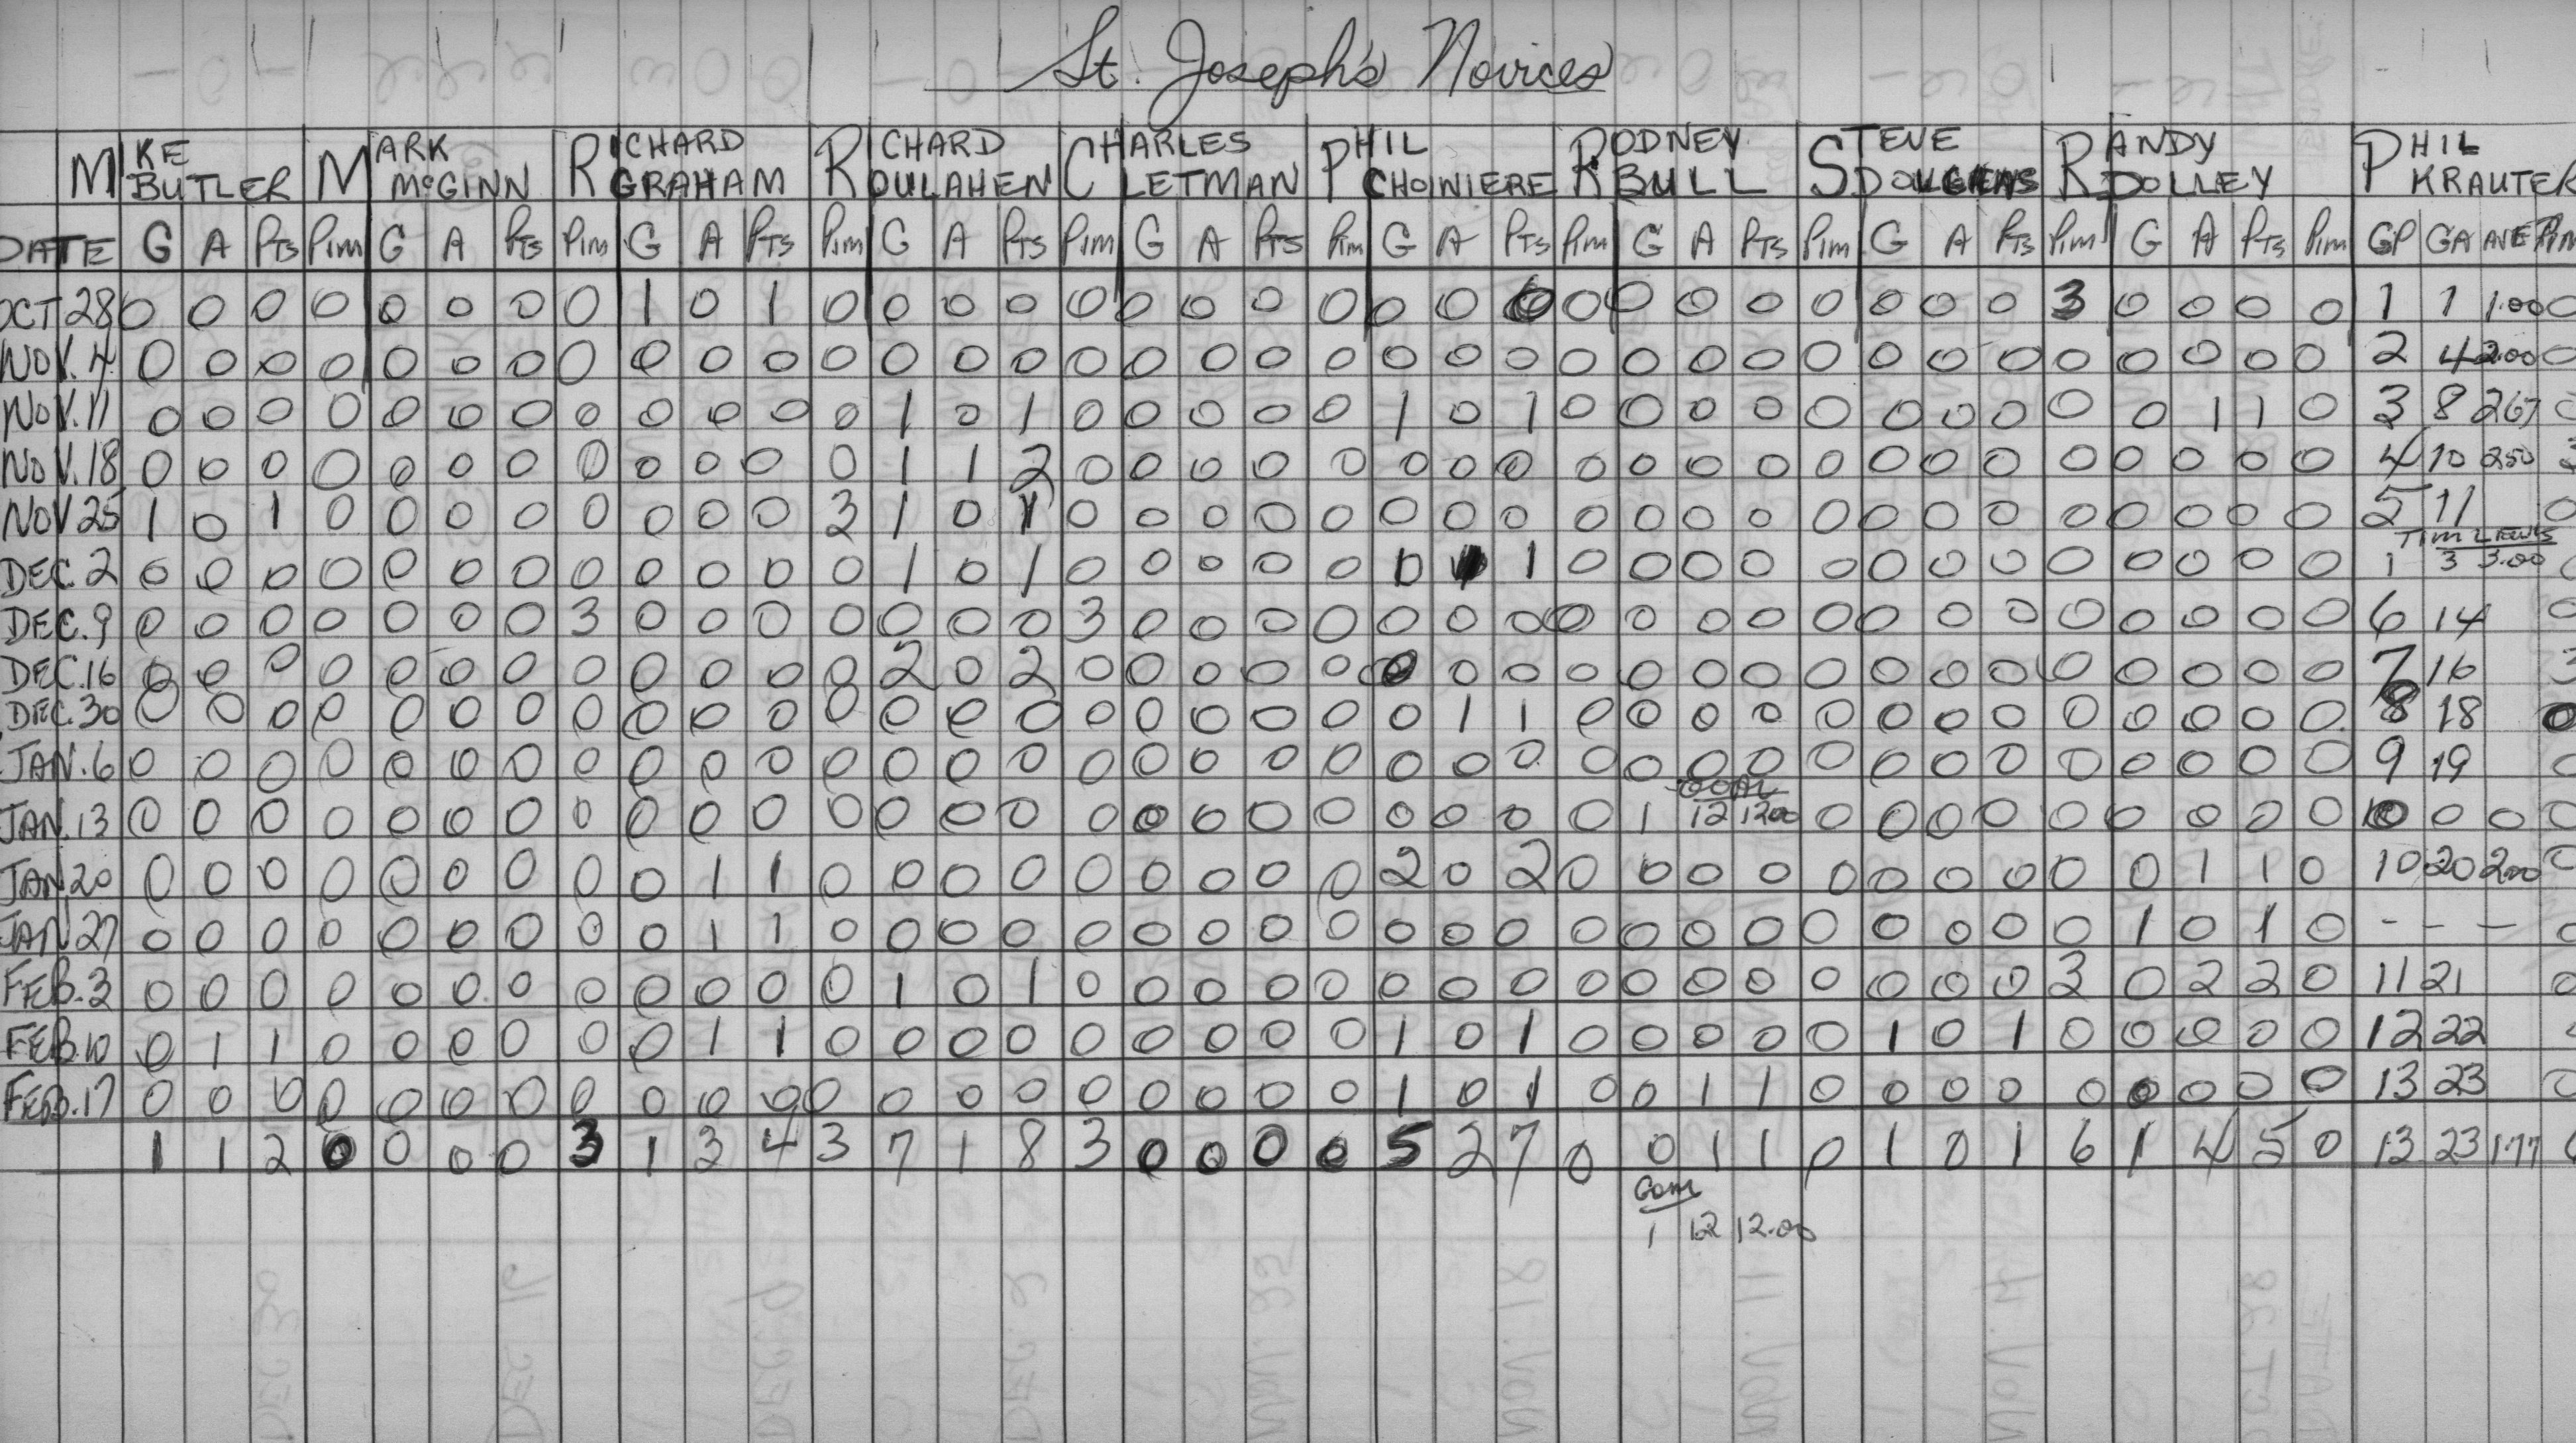 St. Joseph's Novices
MIKE BUTLER MARK McGINN RICHARD GRAHAM RICHARD OULAHEN CHARLES LETMAN PHIL CHOINIERE RODNEY BULL STEVE RANDY DOLLEY PHIL KRAUTER
DATE G A PTS Pim G A PTS Pim G A PTS Pim G A PTS Pim G A PTS Pim G A PTS Pim G A PTS Pim G A PTS Pim G A PTS Pim GP GA AVE Pim
OCT 28 0 0 0 0 0 0 0 0 1 0 1 0 0 0 0 0 0 0 0 0 0 0 0 0 0 0 0 0 0 0 0 3 0 0 0 0 1 1 1.00 0
NOV. 4 0 0 0 0 0 0 0 0 0 0 0 0 0 0 0 0 0 0 0 0 0 0 0 0 0 0 0 0 0 0 0 0 0 0 0 0 2 4 2.00 0
NOV. 11 0 0 0 0 0 0 0 0 0 0 0 0 1 0 1 0 0 0 0 0 1 0 1 0 0 0 0 0 0 0 0 0 0 1 1 0 3 8 267 0
NOV. 18 0 0 0 0 0 0 0 0 0 0 0 0 1 1 2 0 0 0 0 0 0 0 0 0 0 0 0 0 0 0 0 0 0 0 0 0 4 10 250 3
NOV 25 1 0 1 0 0 0 0 0 0 0 0 3 1 0 1 0 0 0 0 0 0 0 0 0 0 0 0 0 0 0 0 0 0 0 0 0 5 11 0
Tim Lewis
DEC. 2 0 0 0 0 0 0 0 0 0 0 0 0 1 0 1 0 0 0 0 0 0 1 1 0 0 0 0 0 0 0 0 0 0 0 0 0 1 3 3.00 0
DEC. 9 0 0 0 0 0 0 0 3 0 0 0 0 0 0 0 3 0 0 0 0 0 0 0 0 0 0 0 0 0 0 0 0 0 0 0 0 6 14 0
DEC. 16 0 0 0 0 0 0 0 0 0 0 0 0 2 0 2 0 0 0 0 0 0 0 0 0 0 0 0 0 0 0 0 0 0 0 0 0 7 16 3
DEC. 30 0 0 0 0 0 0 0 0 0 0 0 0 0 0 0 0 0 0 0 0 0 1 1 0 0 0 0 0 0 0 0 0 0 0 0 0 8 18 0
JAN. 6 0 0 0 0 0 0 0 0 0 0 0 0 0 0 0 0 0 0 0 0 0 0 0 0 0 0 0 0 0 0 0 0 0 0 0 0 9 19 0
GOAL
JAN. 13 0 0 0 0 0 0 0 0 0 0 0 0 0 0 0 0 0 0 0 0 0 0 0 0 1 12 1200 0 0 0 0 0 0 0 0 0 0 0 0 0
JAN 20 0 0 0 0 0 0 0 0 0 1 1 0 0 0 0 0 0 0 0 0 2 0 2 0 0 0 0 0 0 0 0 0 0 1 1 0 10 20 2.00 0
JAN 27 0 0 0 0 0 0 0 0 0 1 1 0 0 0 0 0 0 0 0 0 0 0 0 0 0 0 0 0 0 0 0 0 1 0 1 0 - - - 0
FEB. 3 0 0 0 0 0 0 0 0 0 0 0 0 1 0 1 0 0 0 0 0 0 0 0 0 0 0 0 0 0 0 0 3 0 2 2 0 11 21 0
FEB. 10 0 1 1 0 0 0 0 0 0 1 1 0 0 0 0 0 0 0 0 0 1 0 1 0 0 0 0 0 1 0 1 0 0 0 0 0 12 22
FEB. 17 0 0 0 0 0 0 0 0 0 0 0 0 0 0 0 0 0 0 0 0 1 0 1 0 0 1 1 0 0 0 0 0 0 0 0 0 13 23 0
1 1 2 0 0 0 0 3 1 3 4 3 7 1 8 3 0 0 0 0 5 2 7 0 0 1 1 0 1 0 1 6 1 4 5 0 13 23 1.77 6
Goal
1 12 12.00